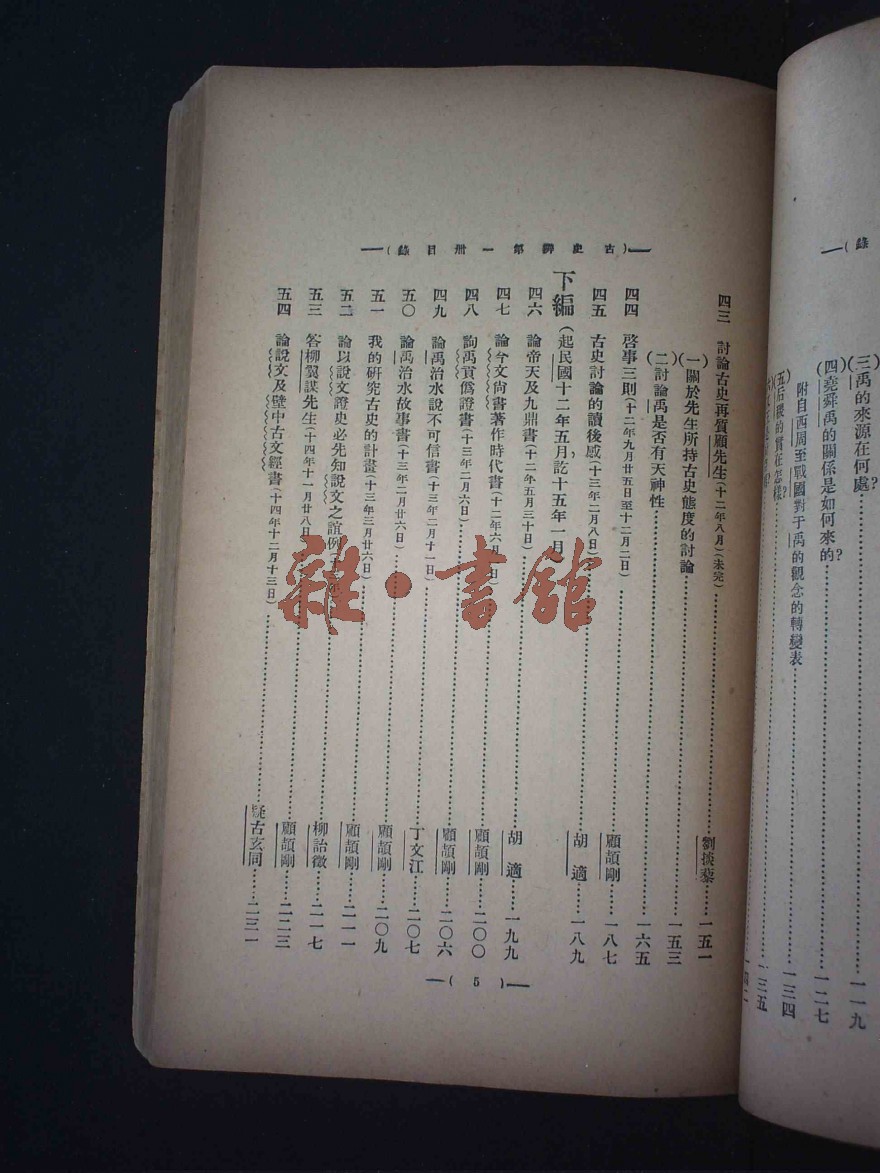 錄)
(三)禹的來源在何處?……一一九
(四)堯舜禹的關係是如何來的?……一二七
附自西周至戰國對于禹的觀念的轉變表……一三四
(五)后稷的實在怎樣?……一三五
(古史辨第一册目錄)
四三 討論古史再質顧先生(十二年八月)(未完)……劉掞藜……一五一
(一)關於先生所持古史態度的討論……一五三
(二)討論禹是否有天神性……一六五
四四 啓事三則(十二年九月廿五日至十二月二日)……顧頡剛……一八七
四五 古史討論的讀後感(十三年二月八日)……胡適……一八九
下編(起民國十二年五月,訖十五年一月)
四六 論帝天及九鼎書(十二年五月三十日)……胡適……一九九
四七 論今文尚書著作時代書(十二年六月一日)……顧頡剛……二〇〇
四八 詢禹貢僞證書(十三年二月六日)……顧頡剛……二〇六
四九 論禹治水說不可信書(十三年二月十一日)……丁文江……二〇七
五〇 論禹治水故事書(十三年二月廿六日)……顧頡剛……二〇九
五一 我的研究古史的計畫(十三年三月廿六日)……顧頡剛……二一一
五二 論以說文證史必先知說文之誼例……柳詒徵……二一七
五三 答柳翼謀先生(十四年十一月廿八日)……顧頡剛……二二三
五四 論說文及壁中古文經書(十四年十二月十三日)……疑古玄同……二三一
(5)
雜·書館